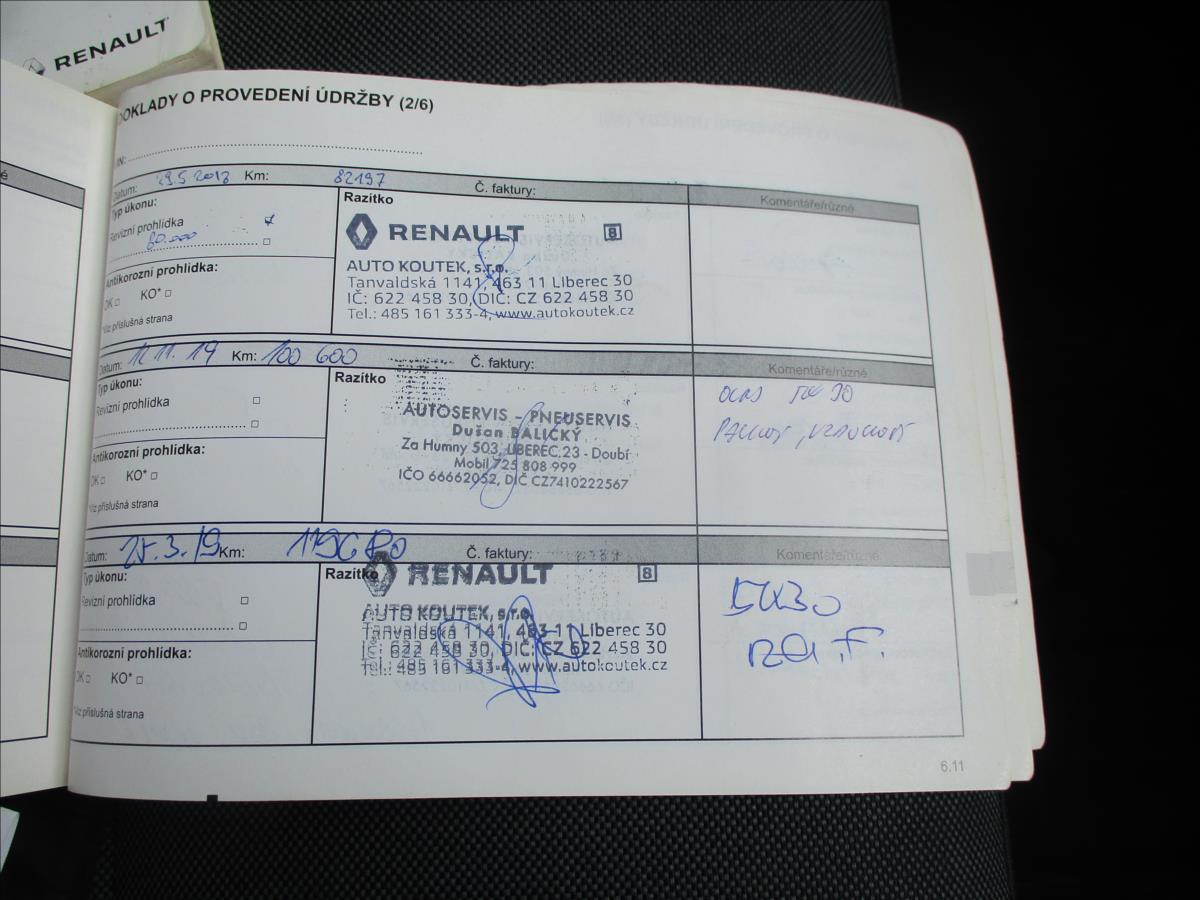 RENAULT
OKLADY O PROVEDENÍ ÚDRŽBY (2/6)
IN:
é
Datum: 29.5.2018 Km: 82197 Č. faktury: Komentáře/různé
Typ úkonu:
Revizní prohlídka
80.000
Antikorozní prohlídka:
OK KO*
*Viz příslušná strana
Razítko
RENAULT 8
AUTO KOUTEK, s.r.o.
Tanvaldská 1141, 463 11 Liberec 30
IČ: 622 458 30, DIČ: CZ 622 458 30
Tel.: 485 161 333-4, www.autokoutek.cz
Datum: 11.19 Km: 100 600 Č. faktury: Komentáře/různé
Typ úkonu:
Revizní prohlídka
Antikorozní prohlídka:
OK KO*
*Viz příslušná strana
Razítko
AUTOSERVIS - PNEUSERVIS
Dušan BALICKÝ
Za Humny 503, LIBEREC 23 - Doubí
Mobil 725 808 999
IČO 66662052, DIČ CZ7410222567
5W 30
Datum: 3.19 Km: 119680 Č. faktury: Komentáře/různé
Typ úkonu:
Revizní prohlídka
Antikorozní prohlídka:
OK KO*
*Viz příslušná strana
Razítko
RENAULT 8
AUTO KOUTEK, s.r.o.
Tanvaldská 1141, 463 11 Liberec 30
IČ: 622 458 30, DIČ: CZ 622 458 30
Tel.: 485 161 333-4, www.autokoutek.cz
5W30
6.11